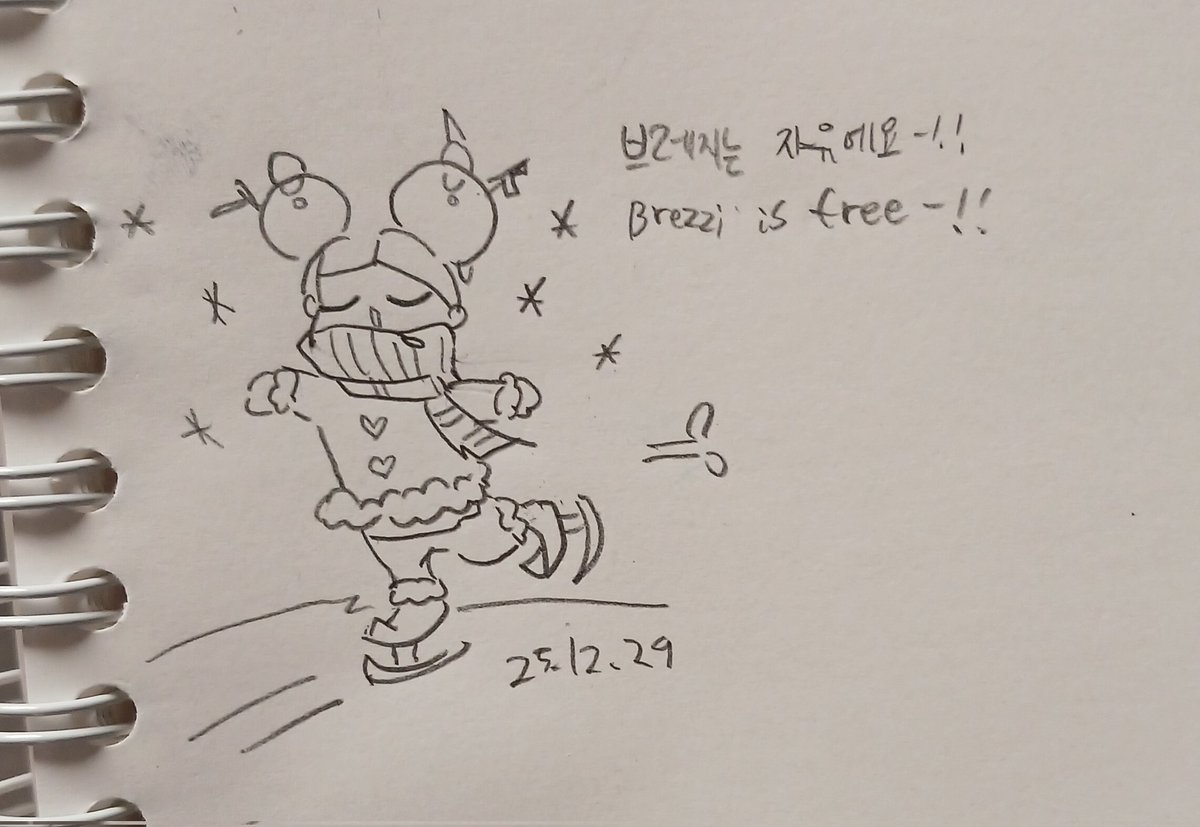 브레지는 자유에요-!!
Brezzi is free-!!
25.12.29